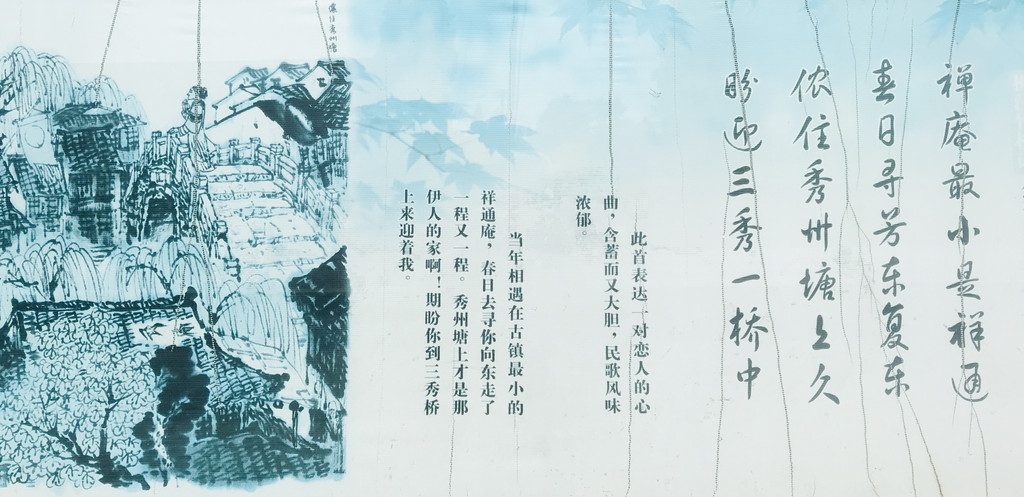 禅庵最小是祥通
春日寻芳东复东
侬住秀州塘上久
盼迎三秀一桥中
此首表达一对恋人的心
曲，含蓄而又大胆，民歌风味
浓郁。
当年相遇在古镇最小的
祥通庵，春日去寻你向东走了
一程又一程。秀州塘上才是那
伊人的家啊！期盼你到三秀桥
上来迎着我。
侬住秀州塘